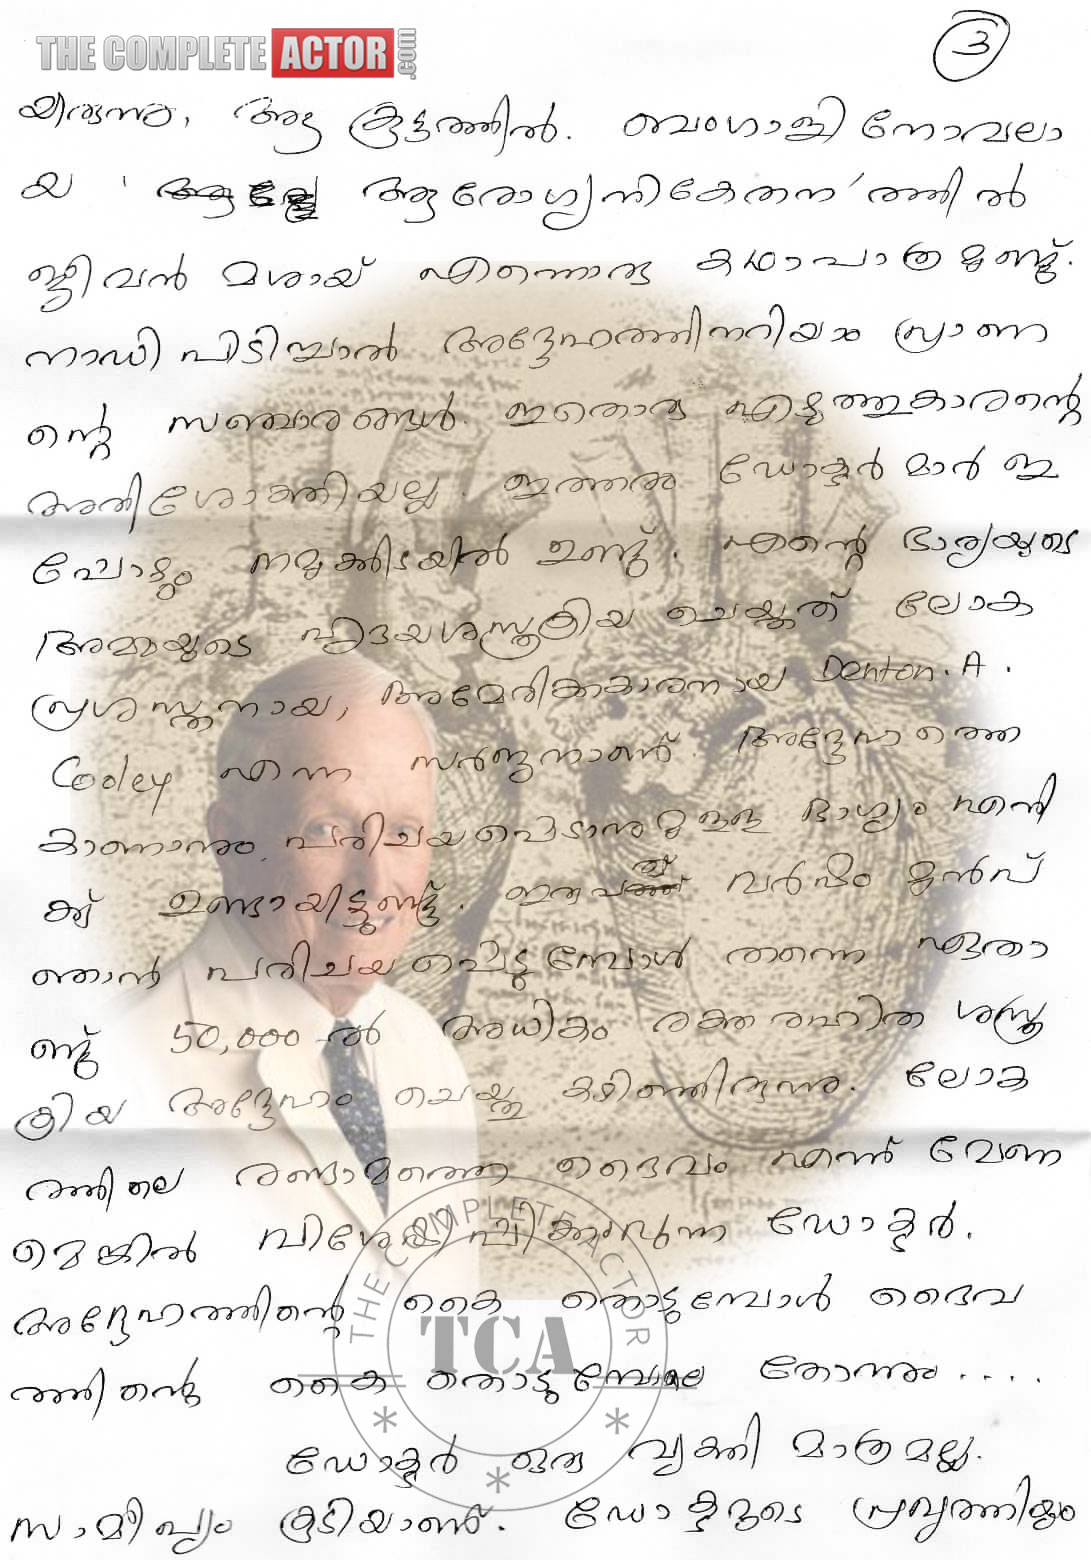 THE COMPLETE ACTOR.com
3
യിരുന്നു, ആ കൂട്ടത്തിൽ. ബംഗാളി നോവലാ
യ 'ആരോഗ്യനികേതന'ത്തിൽ
ജീവൻ മശായ് എന്നൊരു കഥാപാത്രമുണ്ട്.
നാഡി പിടിച്ചാൽ അദ്ദേഹത്തിനറിയാം പ്രാണ
ന്റെ സഞ്ചാരങ്ങൾ. ഇതൊരു എഴുത്തുകാരന്റെ
അതിശോക്തിയല്ല. ഇത്തരം ഡോക്ടർമാർ ഇ
പ്പോഴും നമുക്കിടയിൽ ഉണ്ട്. എന്റെ ഭാര്യയുടെ
അമ്മയുടെ ഹൃദയശസ്ത്രക്രിയ ചെയ്തത് ലോക
പ്രശസ്തനായ, അമേരിക്കകാരനായ Denton. A.
Cooley എന്ന സർജനാണ്. അദ്ദേഹത്തെ
കാണാനും, പരിചയപ്പെടാനുമുള്ള ഭാഗ്യം എനി
ക്ക് ഉണ്ടായിട്ടുണ്ട്. ഇരുപത് വർഷം മുൻപ്
ഞാൻ പരിചയപ്പെടുമ്പോൾ തന്നെ ഏതാ
ണ്ട് 50,000-ൽ അധികം രക്തരഹിത ശസ്ത്ര
ക്രിയ അദ്ദേഹം ചെയ്തു കഴിഞ്ഞിരുന്നു. ലോക
ത്തിലെ രണ്ടാമത്തെ ദൈവം എന്ന് വേണ
മെങ്കിൽ വിശേഷിപ്പിക്കാവുന്ന ഡോക്ടർ.
അദ്ദേഹത്തിന്റെ കൈ തൊടുമ്പോൾ ദൈവ
ത്തിന്റെ കൈ തൊടുമ്പോലെ തോന്നും....
ഡോക്ടർ ഒരു വ്യക്തി മാത്രമല്ല.
സാമീപ്യം കൂടിയാണ്. ഡോക്ടറുടെ പ്രവൃത്തിയും
THE COMPLETE ACTOR
TCA